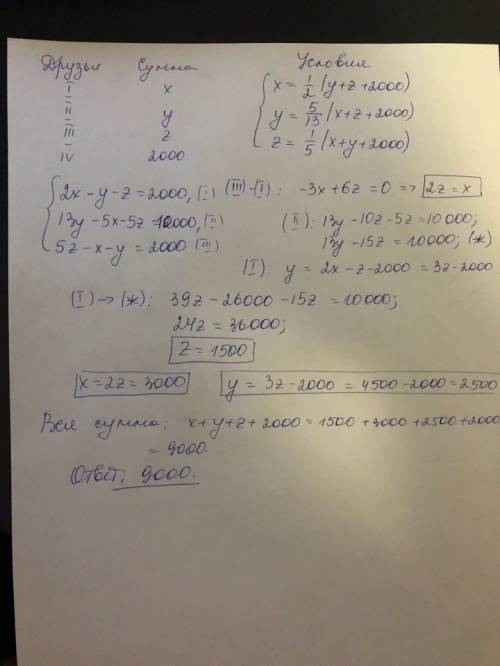 Друзья Сумма Условия
I x x = 1/2 (y+z+2000)
II y y = 5/13 (x+z+2000)
III z z = 1/5 (x+y+2000)
IV 2000
2x-y-z=2000, (I) (III)-(I): -3x+6z=0 => 2z=x
13y-5x-5z=10000, (II) (II): 13y-10z-5z=10000;
5z-x-y=2000 (III) 13y-15z=10000; (*)
(I): y = 2x-z-2000 = 3z-2000
(I) → (*): 39z-26000-15z=10000;
24z=36000;
z=1500
x=2z=3000 y = 3z-2000 = 4500-2000=2500
Вся сумма: x+y+z+2000=1500+3000+2500+2000
= 9000.
Ответ: 9000.